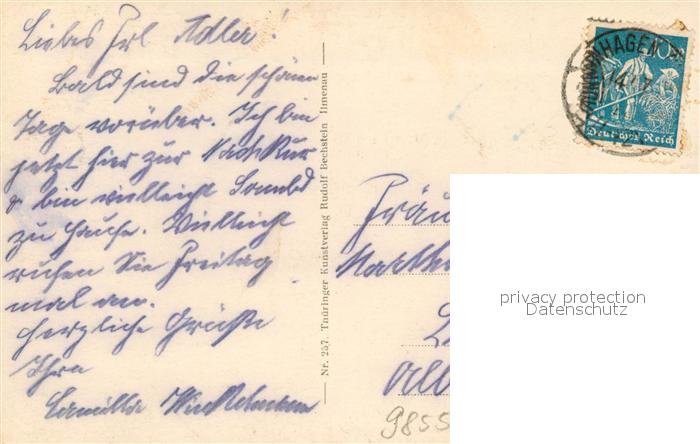 Liebes Frl Adler!
Bald sind die schönen
Tage vorüber. Ich bin
jetzt hier zur Nachkur
& bin vielleicht Sonnabd
zu Hause. Vielleicht
rufen Sie Freitag
mal an.
Herzliche Grüße
Ihre
Camilla Winkelmann
Nr. 257. Thüringer Kunstverlag Rudolf Bechstein Ilmenau
HAGEN
10
Deutsches Reich
Fräu
privacy protection
Datenschutz
9855